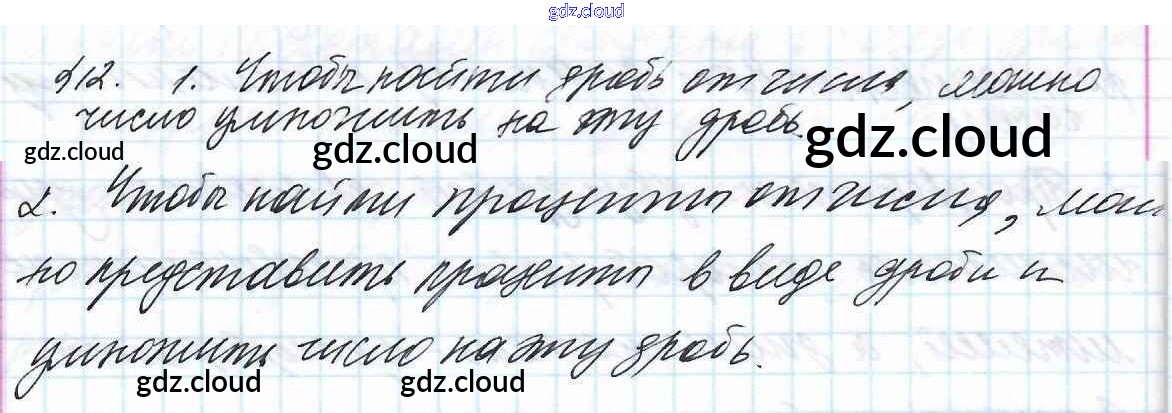 gdz.cloud
§12. 1. Чтобы найти дробь от числа, можно
число умножить на эту дробь.
gdz.cloud gdz.cloud gdz.cloud
2. Чтобы найти проценты от числа, мож
но представить проценты в виде дроби и
умножить число на эту дробь.
gdz.cloud gdz.cloud